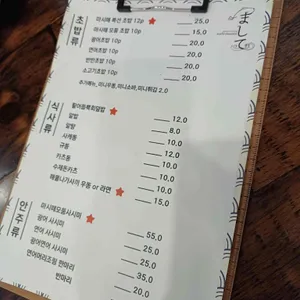 まして
초밥류
마시때 특선 초밥 12p ★ 25.0
마시때 모듬 초밥 10p 15.0
광어초밥 10p 20.0
연어초밥 10p 20.0
반반초밥 10p 20.0
소고기초밥 10p 20.0
추가메뉴, 미니우동, 미니소바, 미니튀김 2.0
식사류
활어듬뿍회덮밥 ★ 12.0
알밥 8.0
알탕 10.0
사케동 12.0
규동 10.0
카츠동 10.0
수제돈카츠 10.0
해물나가사끼 우동 or 라면 ★ 15.0
안주류
마시때모듬사시미 ★ 55.0
광어 사시미 25.0
연어 사시미 25.0
광어연어 사시미 35.0
연어머리조림 한마리 20.0
반마리